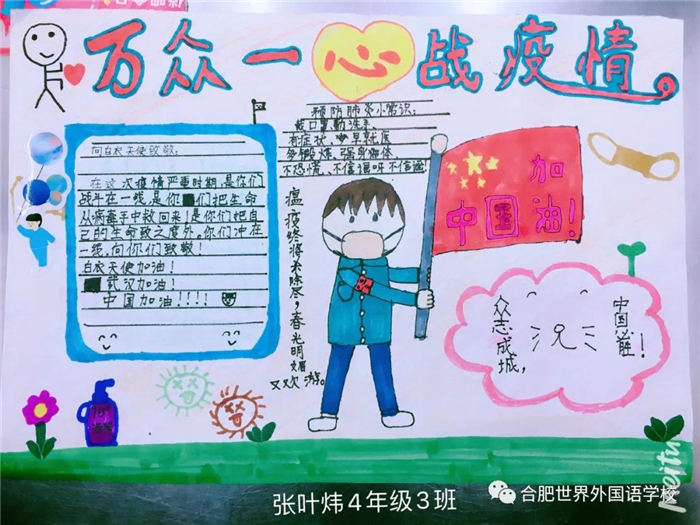 万众一心战疫情
预防肺炎小常识:
戴口罩勤洗手
有症状, 早就医
多锻炼, 强身体
不恐慌、不信谣
向白衣天使致敬:
在这次疫情严重时期,是你们
战斗在一线,是你们把生命
从病毒手中救回来!是你们把自
己的生命致之度外,你们冲在
一线,向你们致敬!
白衣天使加油!
武汉加油!
中国加油!!!!
瘟疫终将去除尽,春光明媚
又欢游。
加
中国油!
众志成城,
中国必胜!
张叶炜4年级3班
合肥世界外国语学校
Meitu